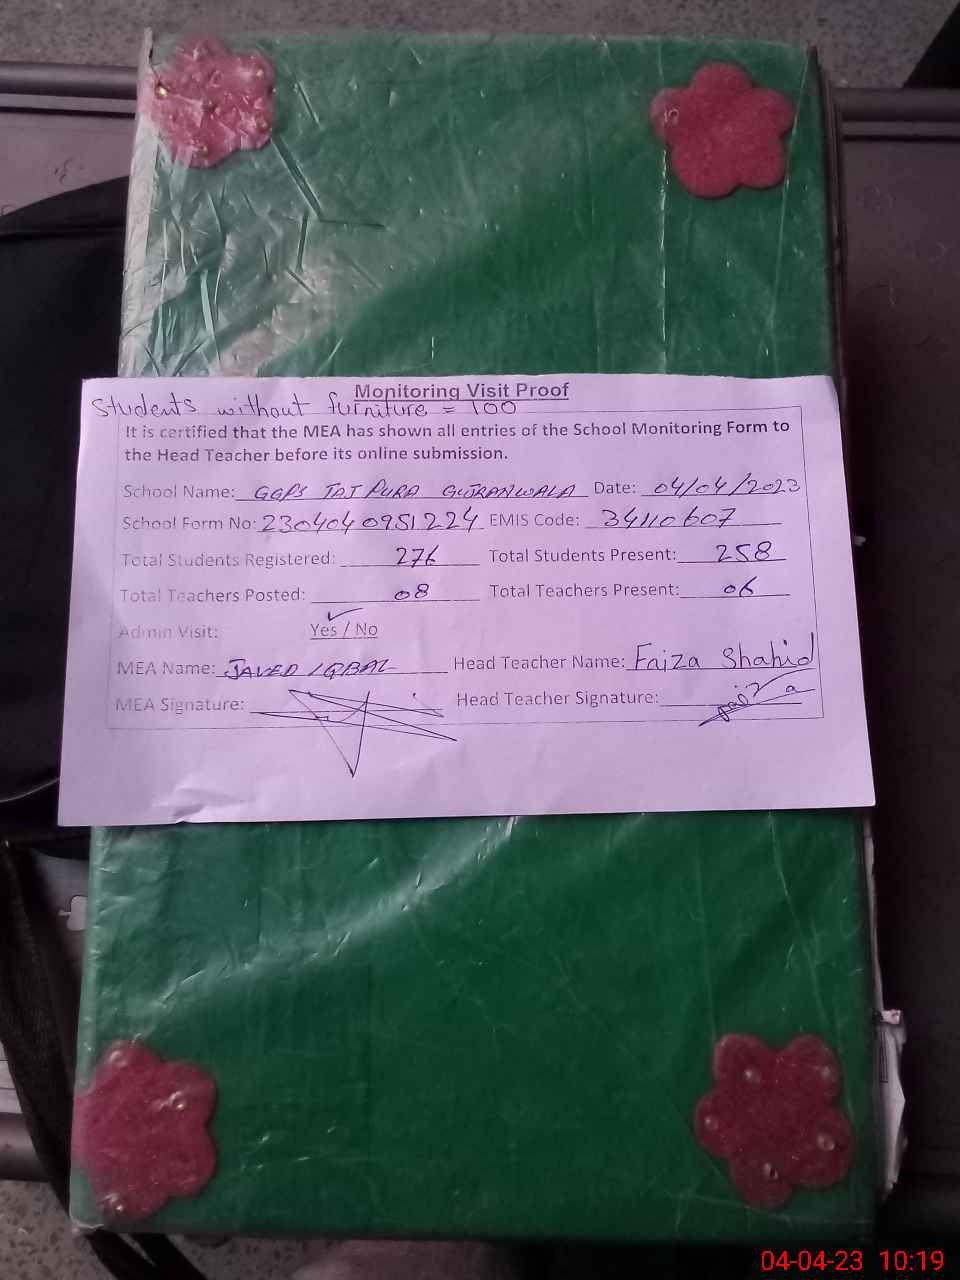 Monitoring Visit Proof
Students without furniture = 100
It is certified that the MEA has shown all entries of the School Monitoring Form to
the Head Teacher before its online submission.
School Name: GGPS TAJ PURA GUJRANWALA Date: 04/04/2023
School Form No: 2304040951224 EMIS Code: 34110607
Total Students Registered: 276 Total Students Present: 258
Total Teachers Posted: 08 Total Teachers Present: 06
Admin Visit: Yes / No
MEA Name: JAVED IQBAL Head Teacher Name: Faiza Shahid
MEA Signature: Head Teacher Signature: Faiza
04-04-23 10:19